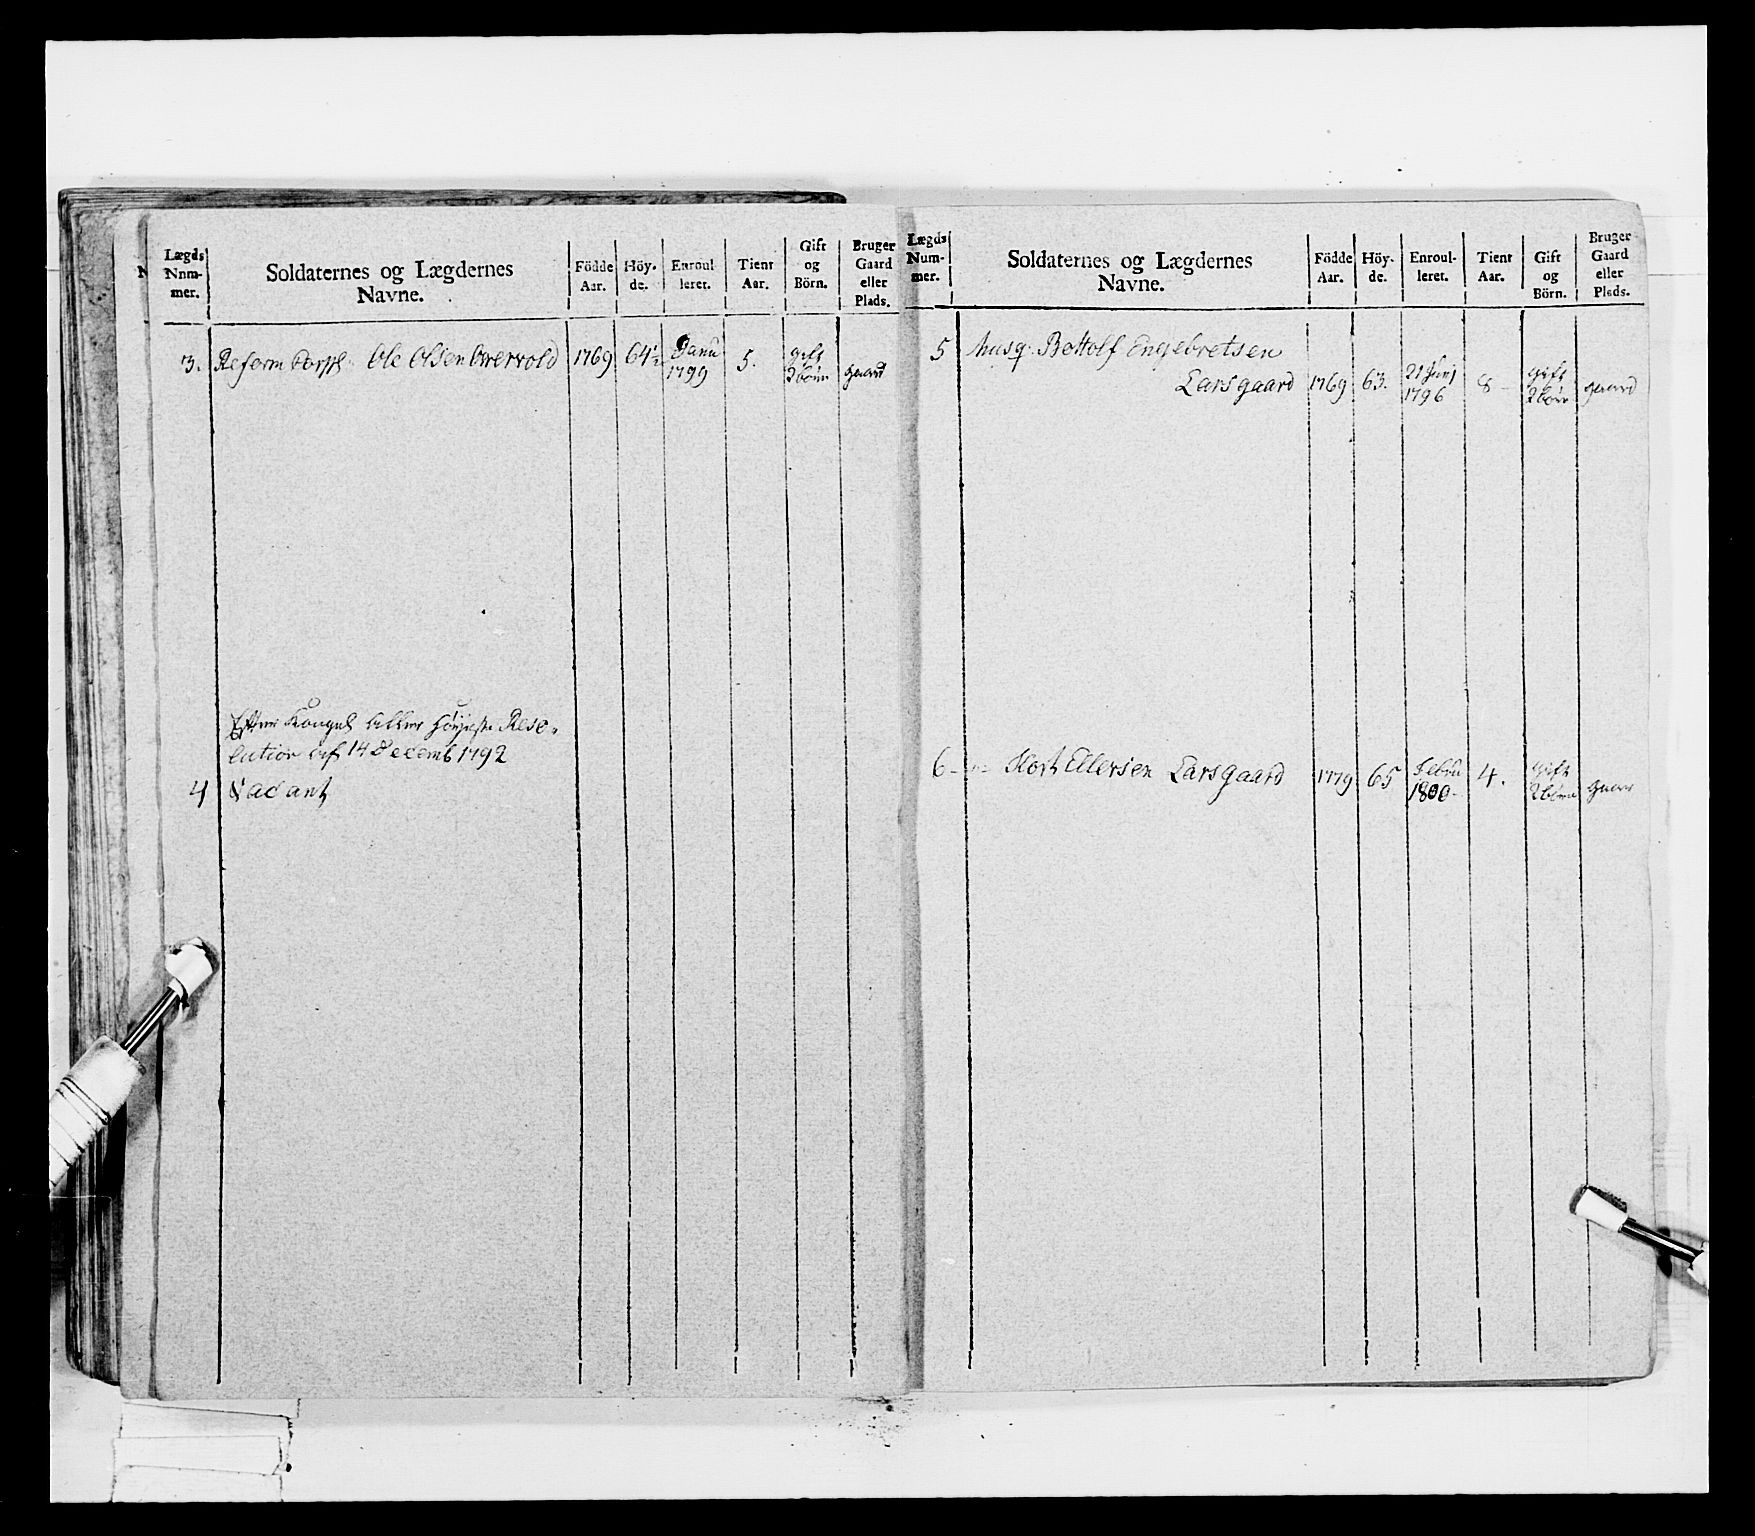 Lægds Nnm- mer.
Soldaternes og Lægdernes Navne.
Födde Aar.
Höy- de.
Enroul leret.
Tient Aar.
Gift og Börn.
Bruger Gaard eller Plads.
3. Reform Corpl: Ole Olsen 1769 64½ Janu 1799 5. gift 2 börn gaard
Efter Kongel Aller Höyeste Reso-
lution af 14 Decemb 1792
4 Vacant
Lægds Num- mer.
Soldaternes og Lægdernes Navne.
Födde Aar.
Höy- de.
Enroul- leret.
Tient Aar.
Gift og Börn.
Bruger Gaard eller Plads.
5 Musq: Bottolf Engebretsen
Larsgaard 1769 63. 21 Junj 1796 8 - gift 2 börn gaard
6 - Ellersen Larsgaard 1779 65 Febru 1800 - 4. gift 2 börn gaar